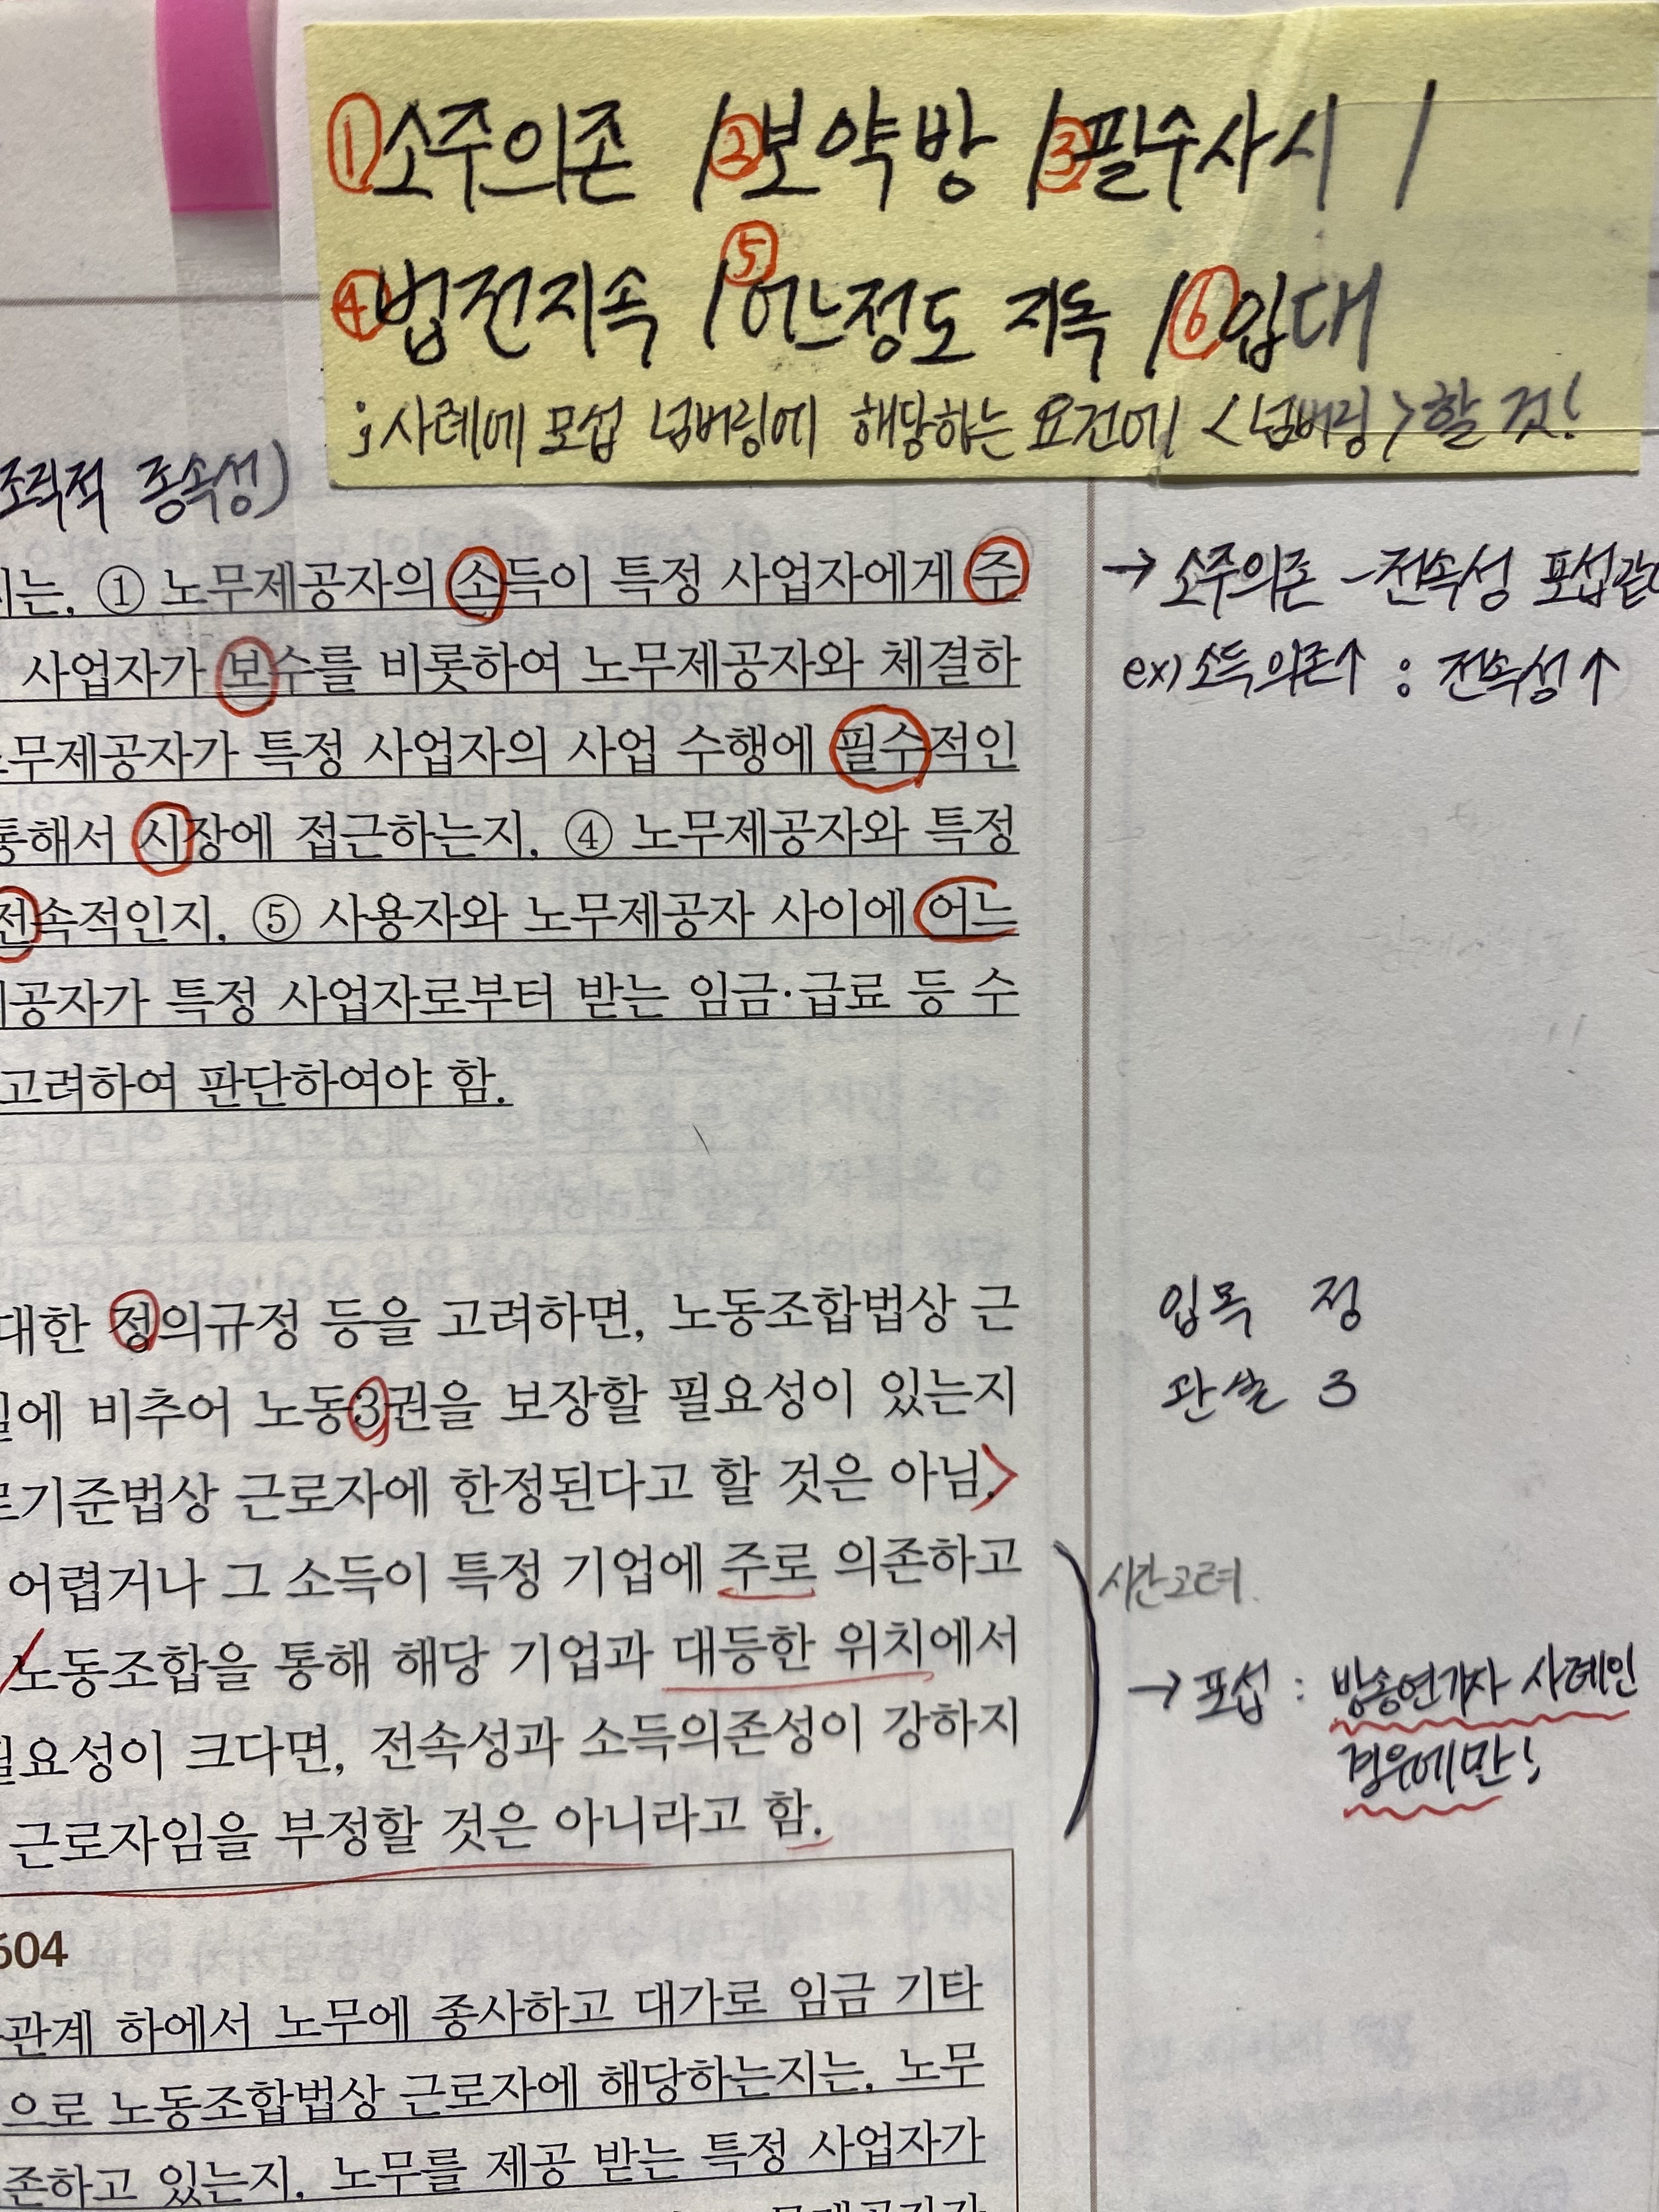 ①소주의존 / ②보약방 / ③필수사시 /
④법전지속 / ⑤어느정도 지독 / ⑥임대
; 사례에 포섭 넘버링에 해당하는 요건에 <넘버링>할 것!
조직적 종속성)
지는, ① 노무제공자의 소득이 특정 사업자에게 주
사업자가 보수를 비롯하여 노무제공자와 체결하
노무제공자가 특정 사업자의 사업 수행에 필수적인
통해서 시장에 접근하는지, ④ 노무제공자와 특정
전속적인지, ⑤ 사용자와 노무제공자 사이에 어느
제공자가 특정 사업자로부터 받는 임금·급료 등 수
고려하여 판단하여야 함.
→ 소주의존 - 전속성 포섭같이
ex) 소득의존↑ : 전속성↑
대한 정의규정 등을 고려하면, 노동조합법상 근
에 비추어 노동3권을 보장할 필요성이 있는지
로기준법상 근로자에 한정된다고 할 것은 아님.>
어렵거나 그 소득이 특정 기업에 주로 의존하고
/노동조합을 통해 해당 기업과 대등한 위치에서
필요성이 크다면, 전속성과 소득의존성이 강하지
근로자임을 부정할 것은 아니라고 함.
입목 정
관실 3
시간고려.
→ 포섭 : 방송연기자 사례인
경우에만!
604
관계 하에서 노무에 종사하고 대가로 임금 기타
으로 노동조합법상 근로자에 해당하는지는, 노무
존하고 있는지, 노무를 제공 받는 특정 사업자가